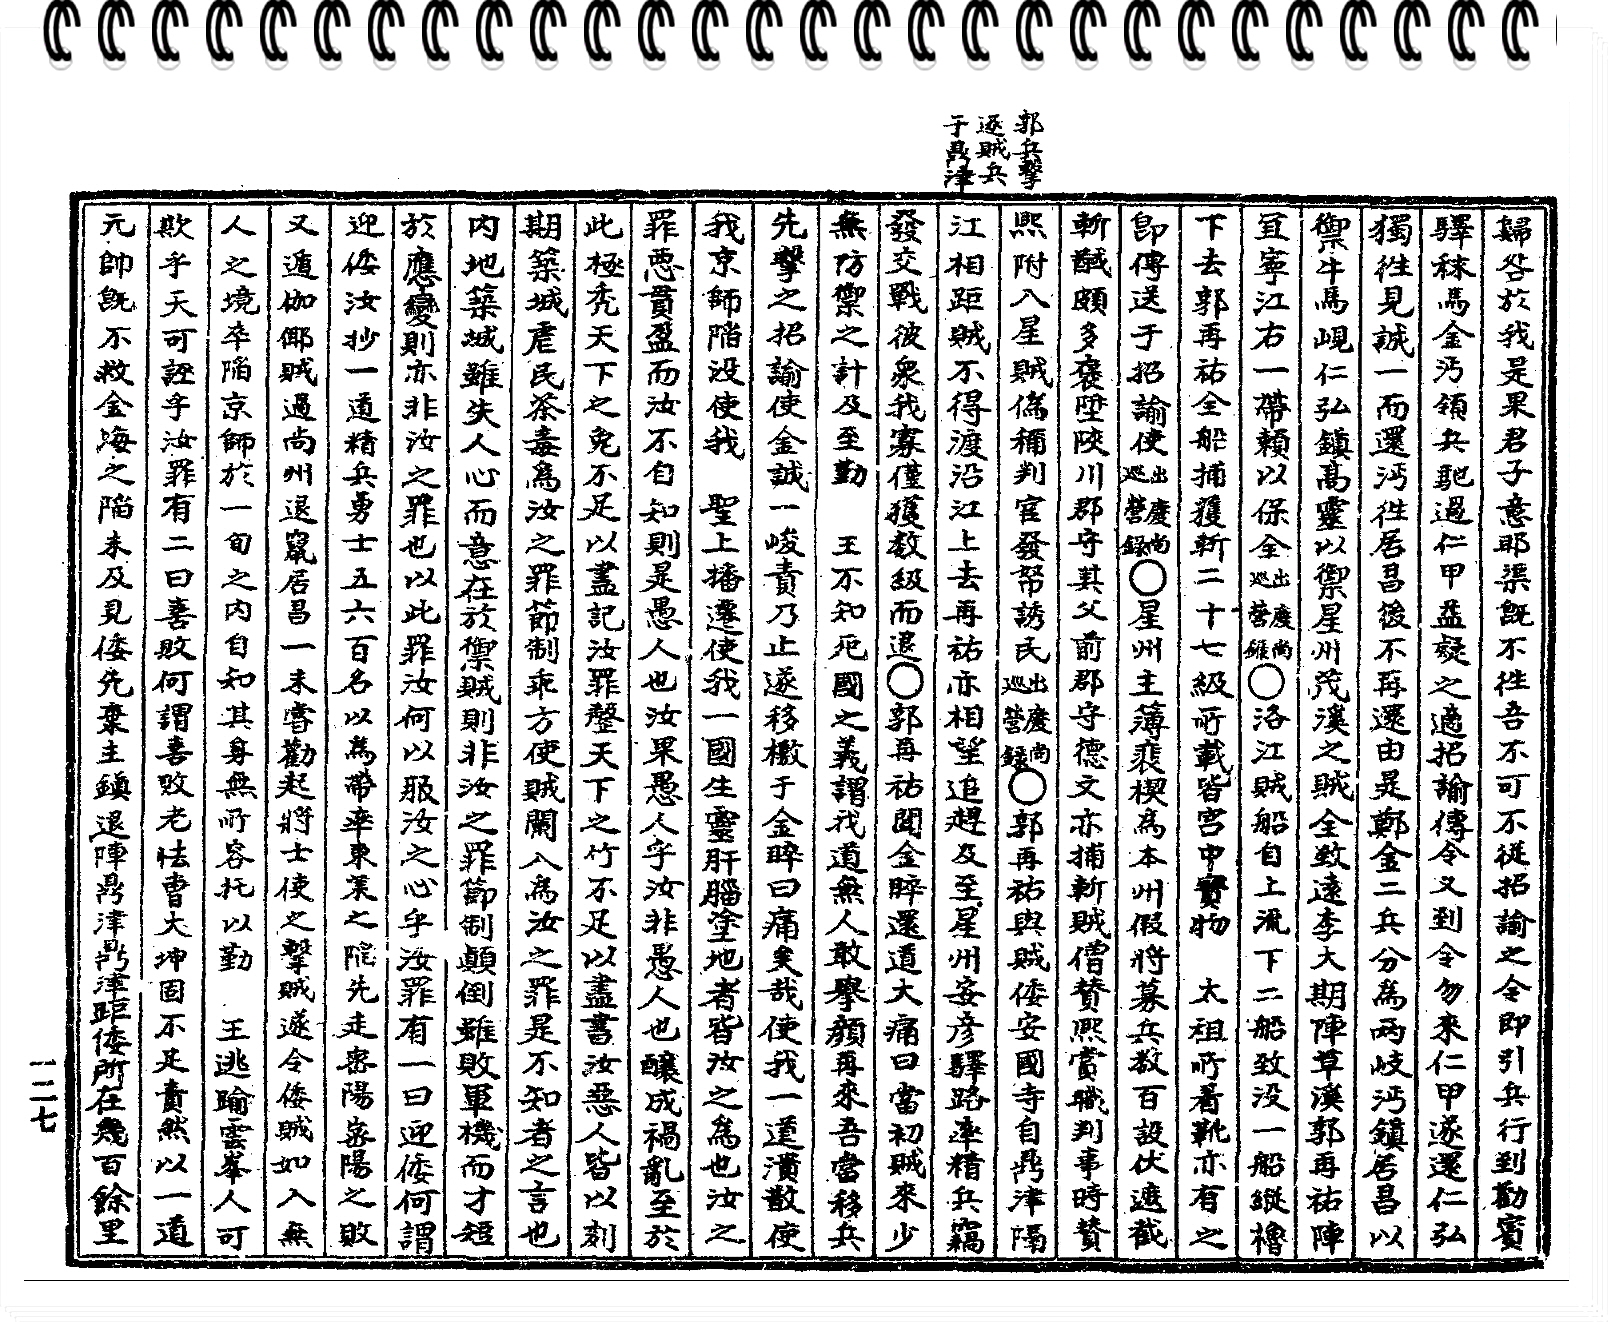 郭兵擊
逐賊兵
于鼎津
歸咎於我是果君子意耶渠旣不徃吾不可不從招諭之令即引兵行到勸賓
驛秣馬金沔領兵馳過仁甲益疑之適招諭傳令又到令勿來仁甲遂還仁弘
獨徃見誠一而還沔徃居昌後不再還由是鄭金二兵分爲兩岐沔鎭居昌以
禦牛馬峴仁弘鎭高靈以禦星州茂溪之賊全致遠李大期陣草溪郭再祐陣
宜寧江右一帶賴以保全出慶尙巡營錄○洛江賊船自上流下二船致没一船縱櫓
下去郭再祐全船捕獲斬二十七級所載皆宮中寶物 太祖所着靴亦有之
卽傳送于招諭使出慶尙巡營錄○星州主簿裴楔爲本州假將募兵数百設伏遮截
斬馘頗多褒陞陜川郡守其父前郡守德文亦捕斬賊僧賛熙賞職判事時賛
熙附入星賊僞稱判官發帑誘民出慶尙巡營錄○郭再祐與賊倭安國寺自鼎津隔
江相距賊不得渡沿江上去再祐亦相望追趕及至星州安彦驛路率精兵竊
發交戰彼衆我寡僅獲数級而退○郭再祐聞金睟還道大痛曰當初賊來少
無防禦之計及至勤 王不知死國之義謂我道無人敢擧顔再來吾當移兵
先擊之招諭使金誠一峻責乃止遂移檄于金睟曰痛矣哉使我一道潰散使
我京師陷没使我 聖上播遷使我一國生靈肝腦塗地者皆汝之爲也汝之
罪惡貫盈而汝不自知則是愚人也汝果愚人乎汝非愚人也釀成禍亂至於
此極秃天下之兎不足以盡記汝罪罄天下之竹不足以盡書汝惡人皆以刻
期築城虐民荼毒爲汝之罪節制乖方使賊闌入爲汝之罪是不知者之言也
内地築城雖失人心而意在於禦賊則非汝之罪節制顚倒雖敗軍機而才短
於應變則亦非汝之罪也以此罪汝何以服汝之心乎汝罪有一曰迎倭何謂
迎倭汝抄一道精兵勇士五六百名以爲帶率東萊之陷先走密陽密陽之敗
又遁伽倻賊過尙州退竄居昌一未嘗勸起將士使之擊賊遂令倭賊如入無
人之境卒陷京師於一旬之内自知其身無所容托以勤 王逃踰雲峯人可
欺乎天可誣乎汝罪有二曰喜敗何謂喜敗老怯曹大坤固不足責然以一道
元帥旣不救金海之陷未及見倭先棄主鎭退陣鼎津鼎津距倭所在幾百餘里
一二七